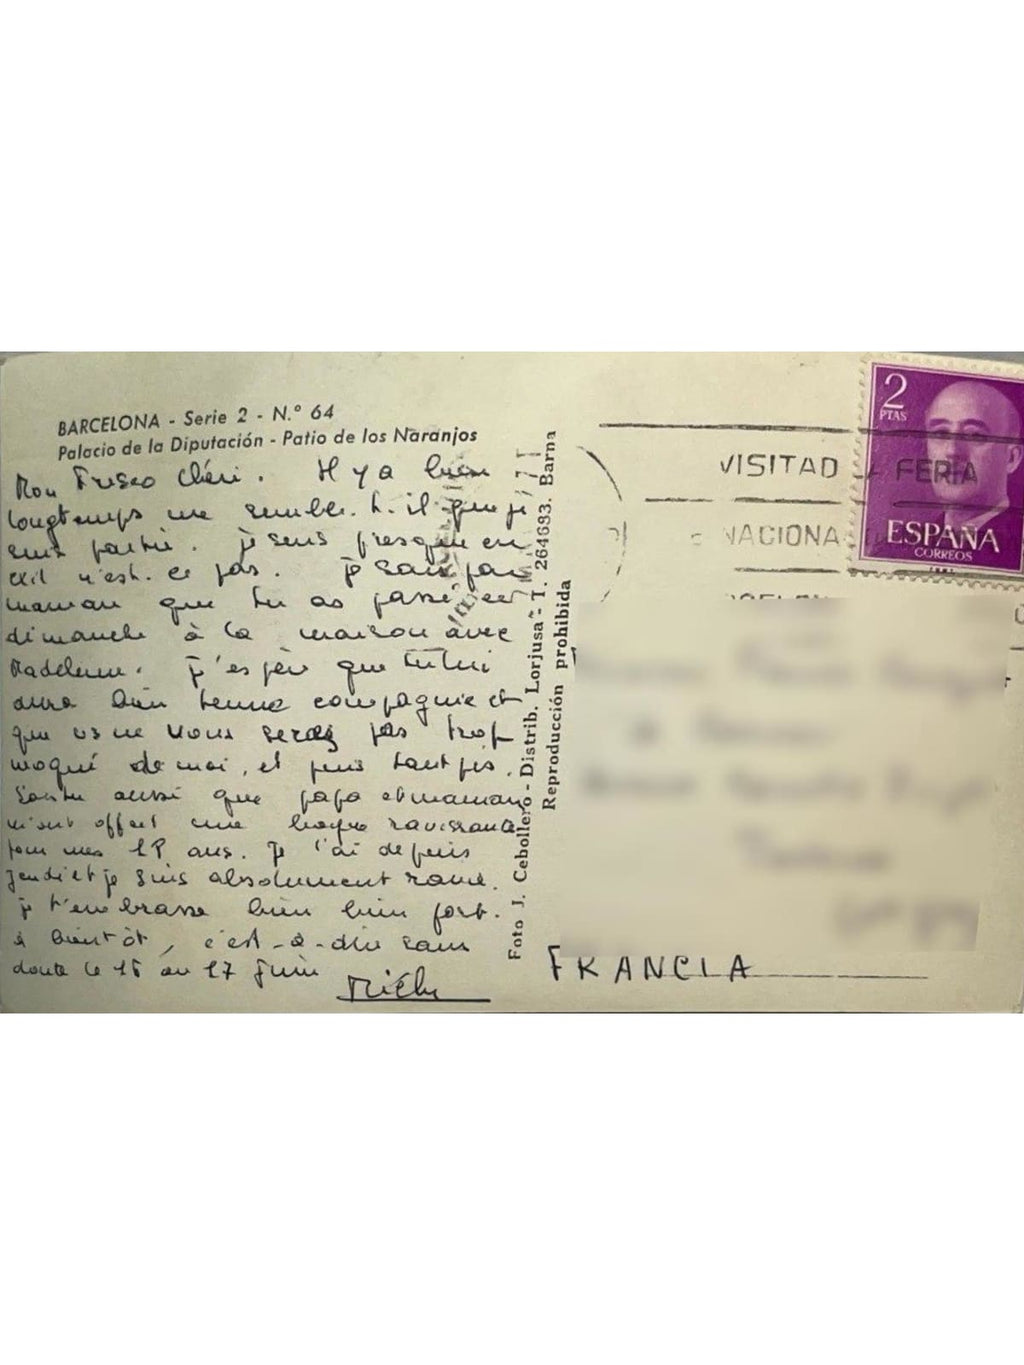 BARCELONA - Serie 2 - N.° 64
Palacio de la Diputación - Patio de los Naranjos
Mon Chéri. Il y a bien
longtemps me semble-t-il que je
suis partie. Je suis presque en
exil n'est-ce pas. Je sais par
maman que tu as passé
dimanche à la maison avec
Madeleine. J'espère que tu lui
auras bien tenue compagnie et
que vs ne vous serez pas trop
moqué de moi, et puis tant pis.
Sais tu aussi que papa et maman
m'ont offert une bague ravissante
pour mes 18 ans. Je l'ai depuis
jeudi et je suis absolument ravie.
Je t'embrasse bien bien fort.
à bientôt, c'est-à-dire sans
doute le 16 ou 17 Juin
Foto J. Cebollero - Distrib. Lorjusa - T. 264683. Barna
Reproducción prohibida
VISITAD FERIA
NACIONA
2
PTAS
ESPAÑA
CORREOS
FRANCIA